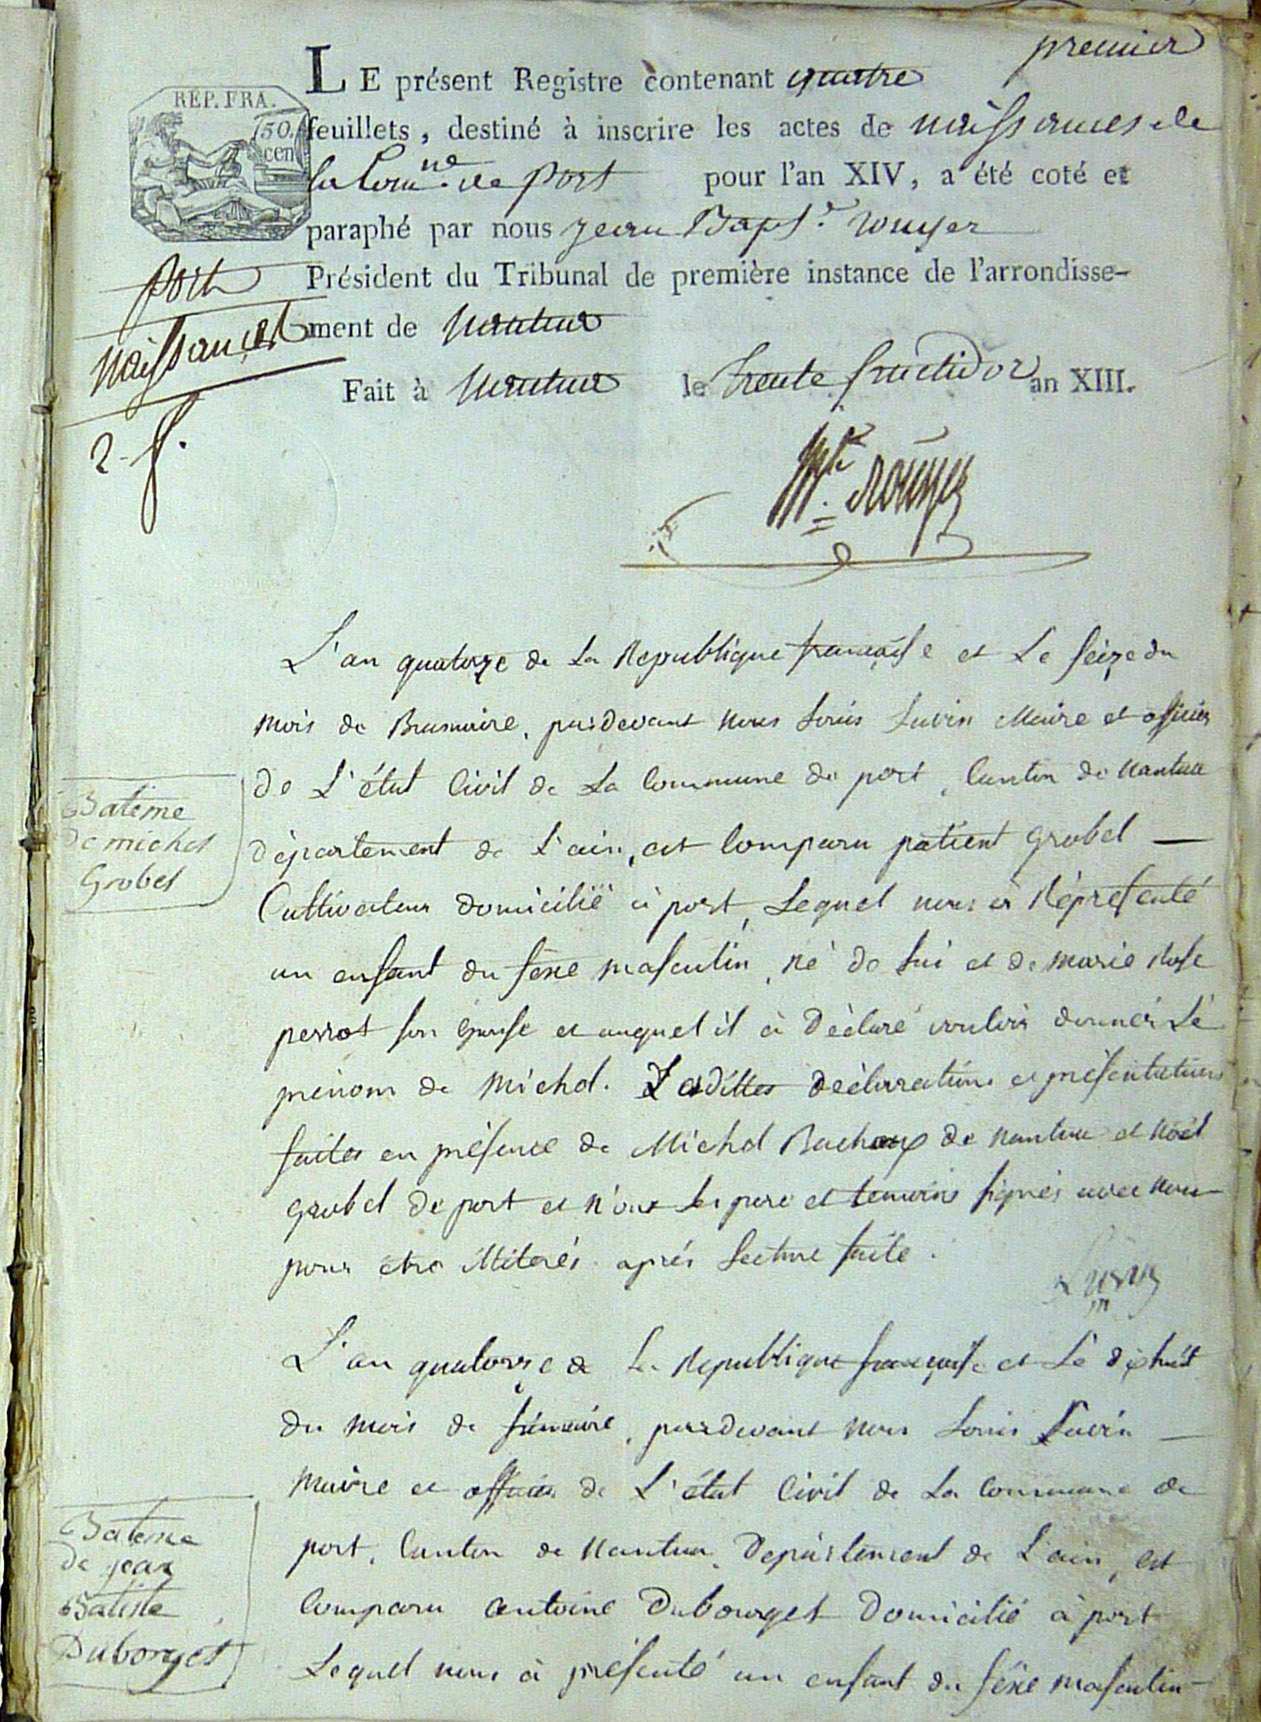 premier
LE présent Registre contenant quatre
REP. FRA.
50.
cen
feuillets, destiné à inscrire les actes de naissances de
la Comne de Port pour l'an XIV, a été coté et
paraphé par nous Jean Bapte Rouyer
Port
Président du Tribunal de première instance de l'arrondisse-
naissances
ment de Nantua
Fait à Nantua le trente fructidor an XIII.
2 f.
Rouyer
L'an quatorze de La Republique française et Le seize du
mois de Brumaire, pardevant nous Louis Savin Maire et officier
de L'état Civil de La Commune de port, Canton de Nantua
Batême
de michel
Grobel
département de L'ain, est Comparu patient Grobel —
Cultivateur domicilié à port, Lequel nous à Réprésenté
un enfant du séxe masculin, né de lui et de marie Rose
perrot son épouse et auquel il à Déclaré vouloir donner Lé
prénom de Michel. Lesdittes déclarations et présentations
faites en présence de Michel Buchoux de nantua et Noël
Grobel de port et n'ont les pere et temoins signés avec nous
pour être illiterés aprés Lecture faite.
L'an quatorze de La Republique française et Lé dixhuit
du mois de frimaire, pardevant nous Louis Savin —
Maire et officier de L'état Civil de La Commune de
Batême
de jean
Batiste
Duborgés
port, Canton de Nantua, Département de L'ain, est
Comparu Antoine Dubourget Domicilié à port
Lequel nous à présenté un enfant du séxe masculin —